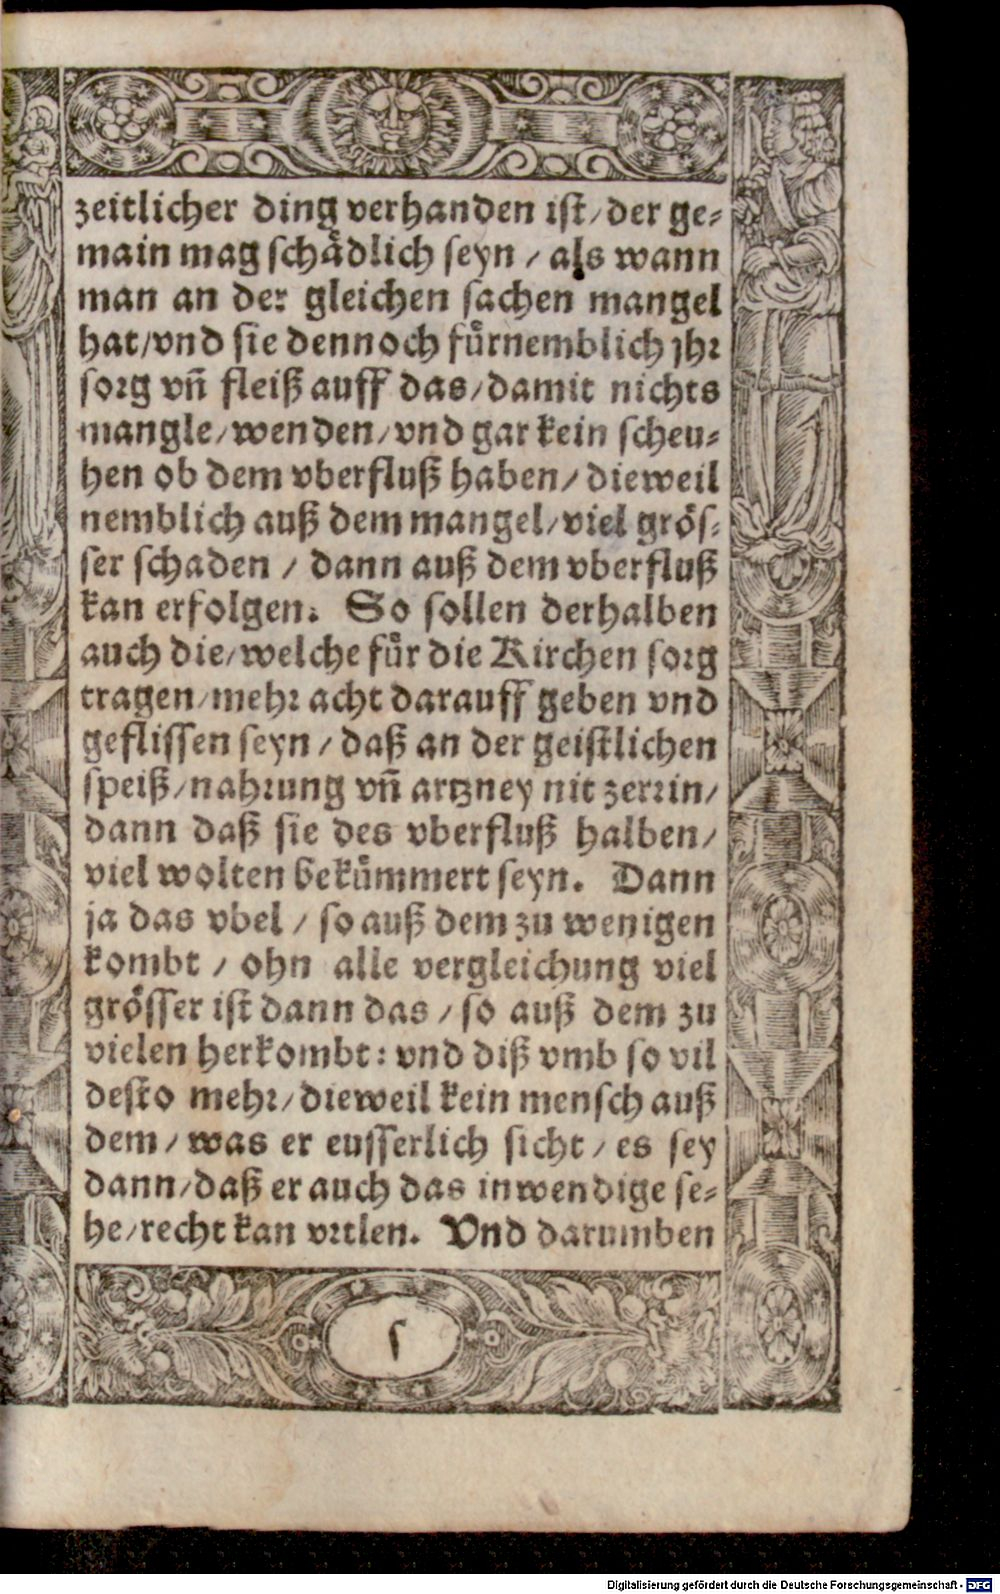 zeitlicher ding verhanden ist/der ge-
main mag schådlich seyn / als wann
man an der gleichen sachen mangel
hat/vnd sie dennoch fůrnemblich jhr
sorg vn̄ fleiß auff das/damit nichts
mangle/wenden/vnd gar kein scheu-
hen ob dem vberfluß haben/ dieweil
nemblich auß dem mangel/viel grös-
ser schaden / dann auß dem vberfluß
kan erfolgen. So sollen derhalben
auch die/welche fůr die Kirchen sorg
tragen/mehr acht darauff geben vnd
geflissen seyn / daß an der geistlichen
speiß/nahrung vn̄ artzney nit zerrin/
dann daß sie des vberfluß halben/
viel wolten bekůmmert seyn. Dann
ja das vbel / so auß dem zu wenigen
kombt / ohn alle vergleichung viel
grösser ist dann das / so auß dem zu
vielen herkombt: vnd diß vmb so vil
desto mehr/dieweil kein mensch auß
dem/ was er eusserlich sicht/ es sey
dann/daß er auch das inwendige se-
he/recht kan vrtlen. Vnd darumben
Digitalisierung gefördert durch die Deutsche Forschungsgemeinschaft - DFG